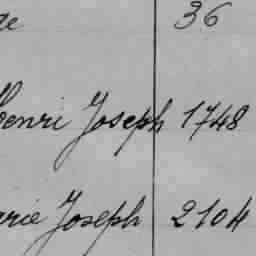 36
Henri Joseph 1748
Joseph 2104